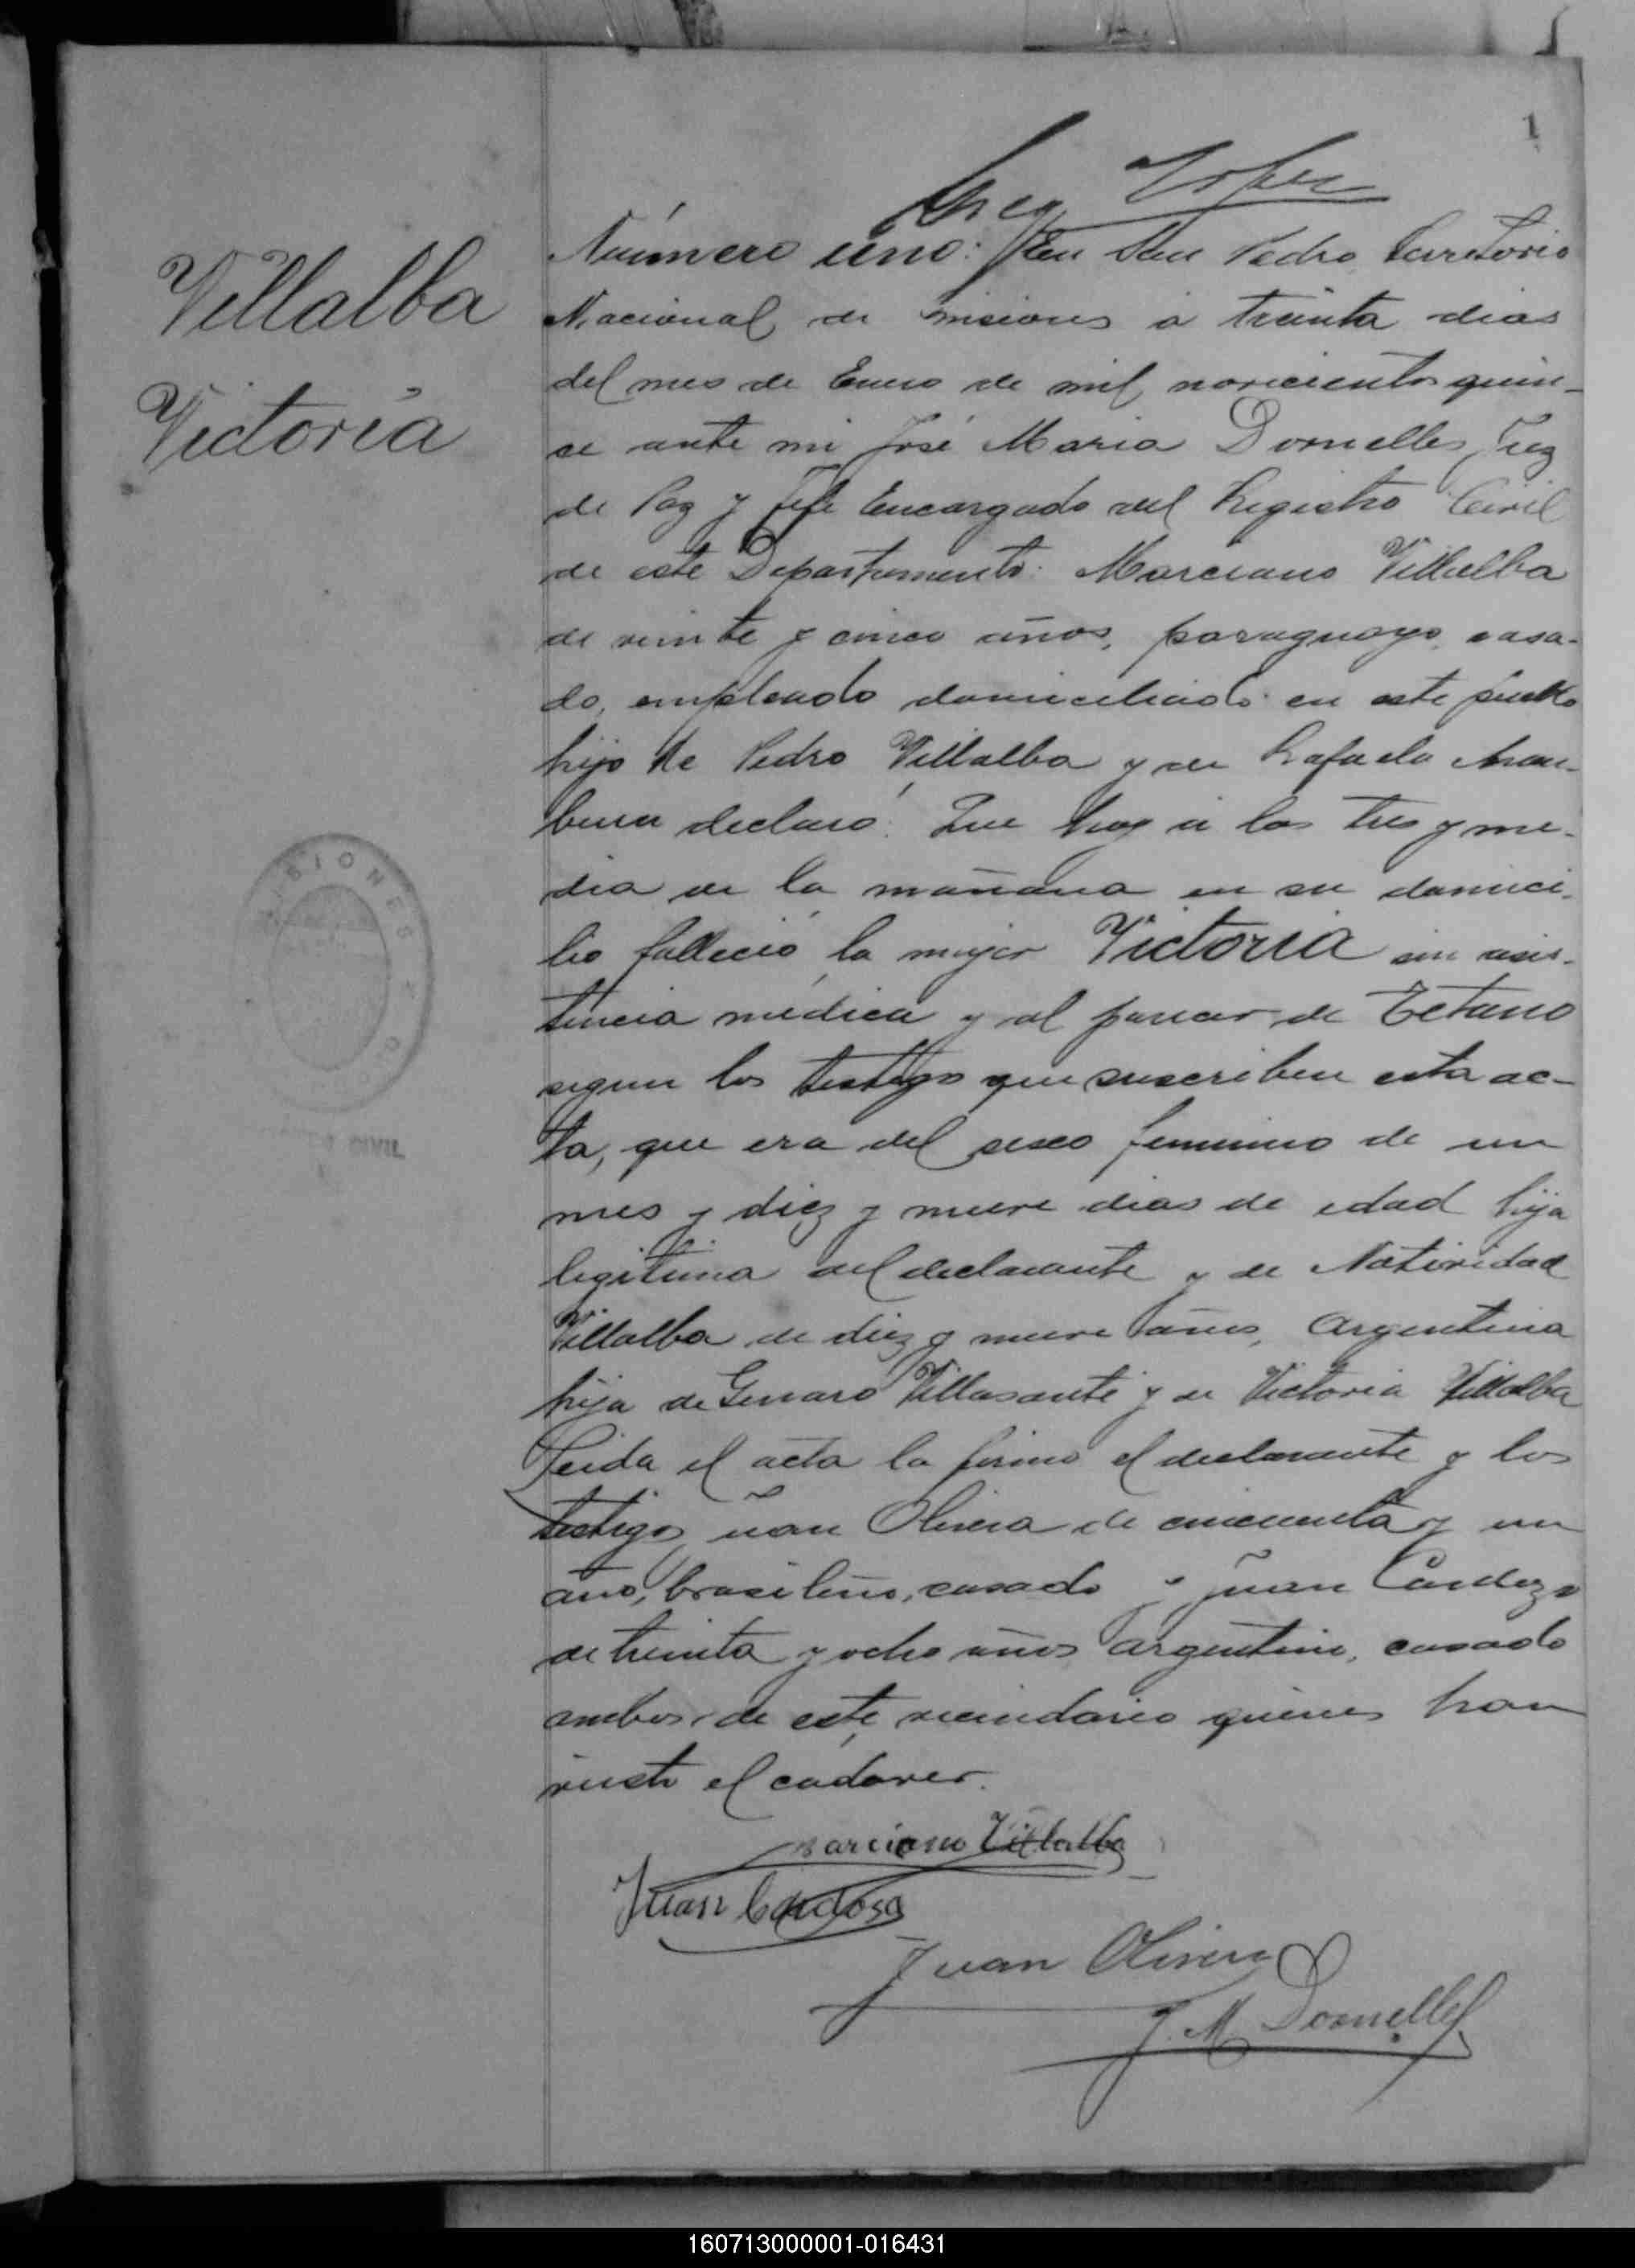 1
Número uno: En San Pedro Territorio
Villalba
Nacional de Misiones á treinta dias
del mes de Enero de mil novecientos quin-
Victoria
se ante mi José Maria Dornelles Juez
de Paz y Jefe Encargado del Registro Civil
de este Departamento: Marciano Villalba
de veinte y cinco años, paraguayo, casa-
do, empleado domiciliado en este pueblo
hijo de Pedro Villalba y de Rafaela
declaró: Que hoy á las tres y me-
dia de la mañana en su domici-
lio falleció la mujer Victoria sin asis-
tencia médica y al parecer de Tetano
segun los testigos que suscriben esta ac-
ta, que era del sexo femenino de un
mes y diez y nueve dias de edad hija
legitima del declarante y de Natividad
Villalba de diez y nueve años, Argentina
hija de Genaro Villasanti y de Victoria Villalba
Leida el acta la firmó el declarante y los
testigos Juan Olivera de cincuenta y un
año, brasileño, casado y Juan Cardozo
de treinta y ocho años argentino, casado
ambos de este vecindario quienes han
visto el cadaver.
Marciano Villalba
Juan Cardoso
Juan Olivera
J. M. Dornelles
MISIONES
CIVIL
160713000001-016431